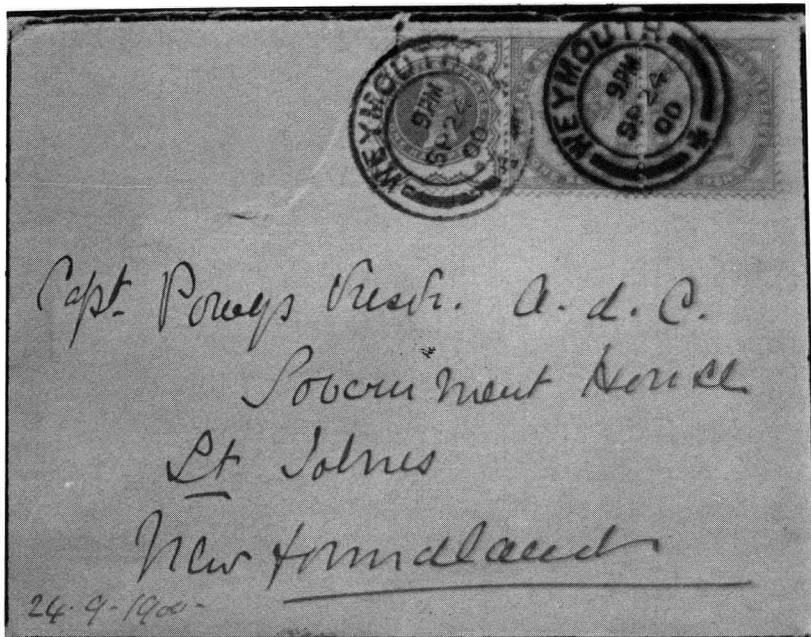 WEYMOUTH
9PM
SP 24
00
WEYMOUTH
9PM
SP 24
00
Capt. Powys A. d. C.
Government House
St Johns
Newfoundland
24-9-1900-